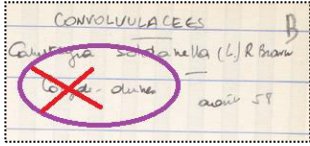 CONVOLVULACEES B
Calystegia soldanella (L) R Brown
dunes
août 58